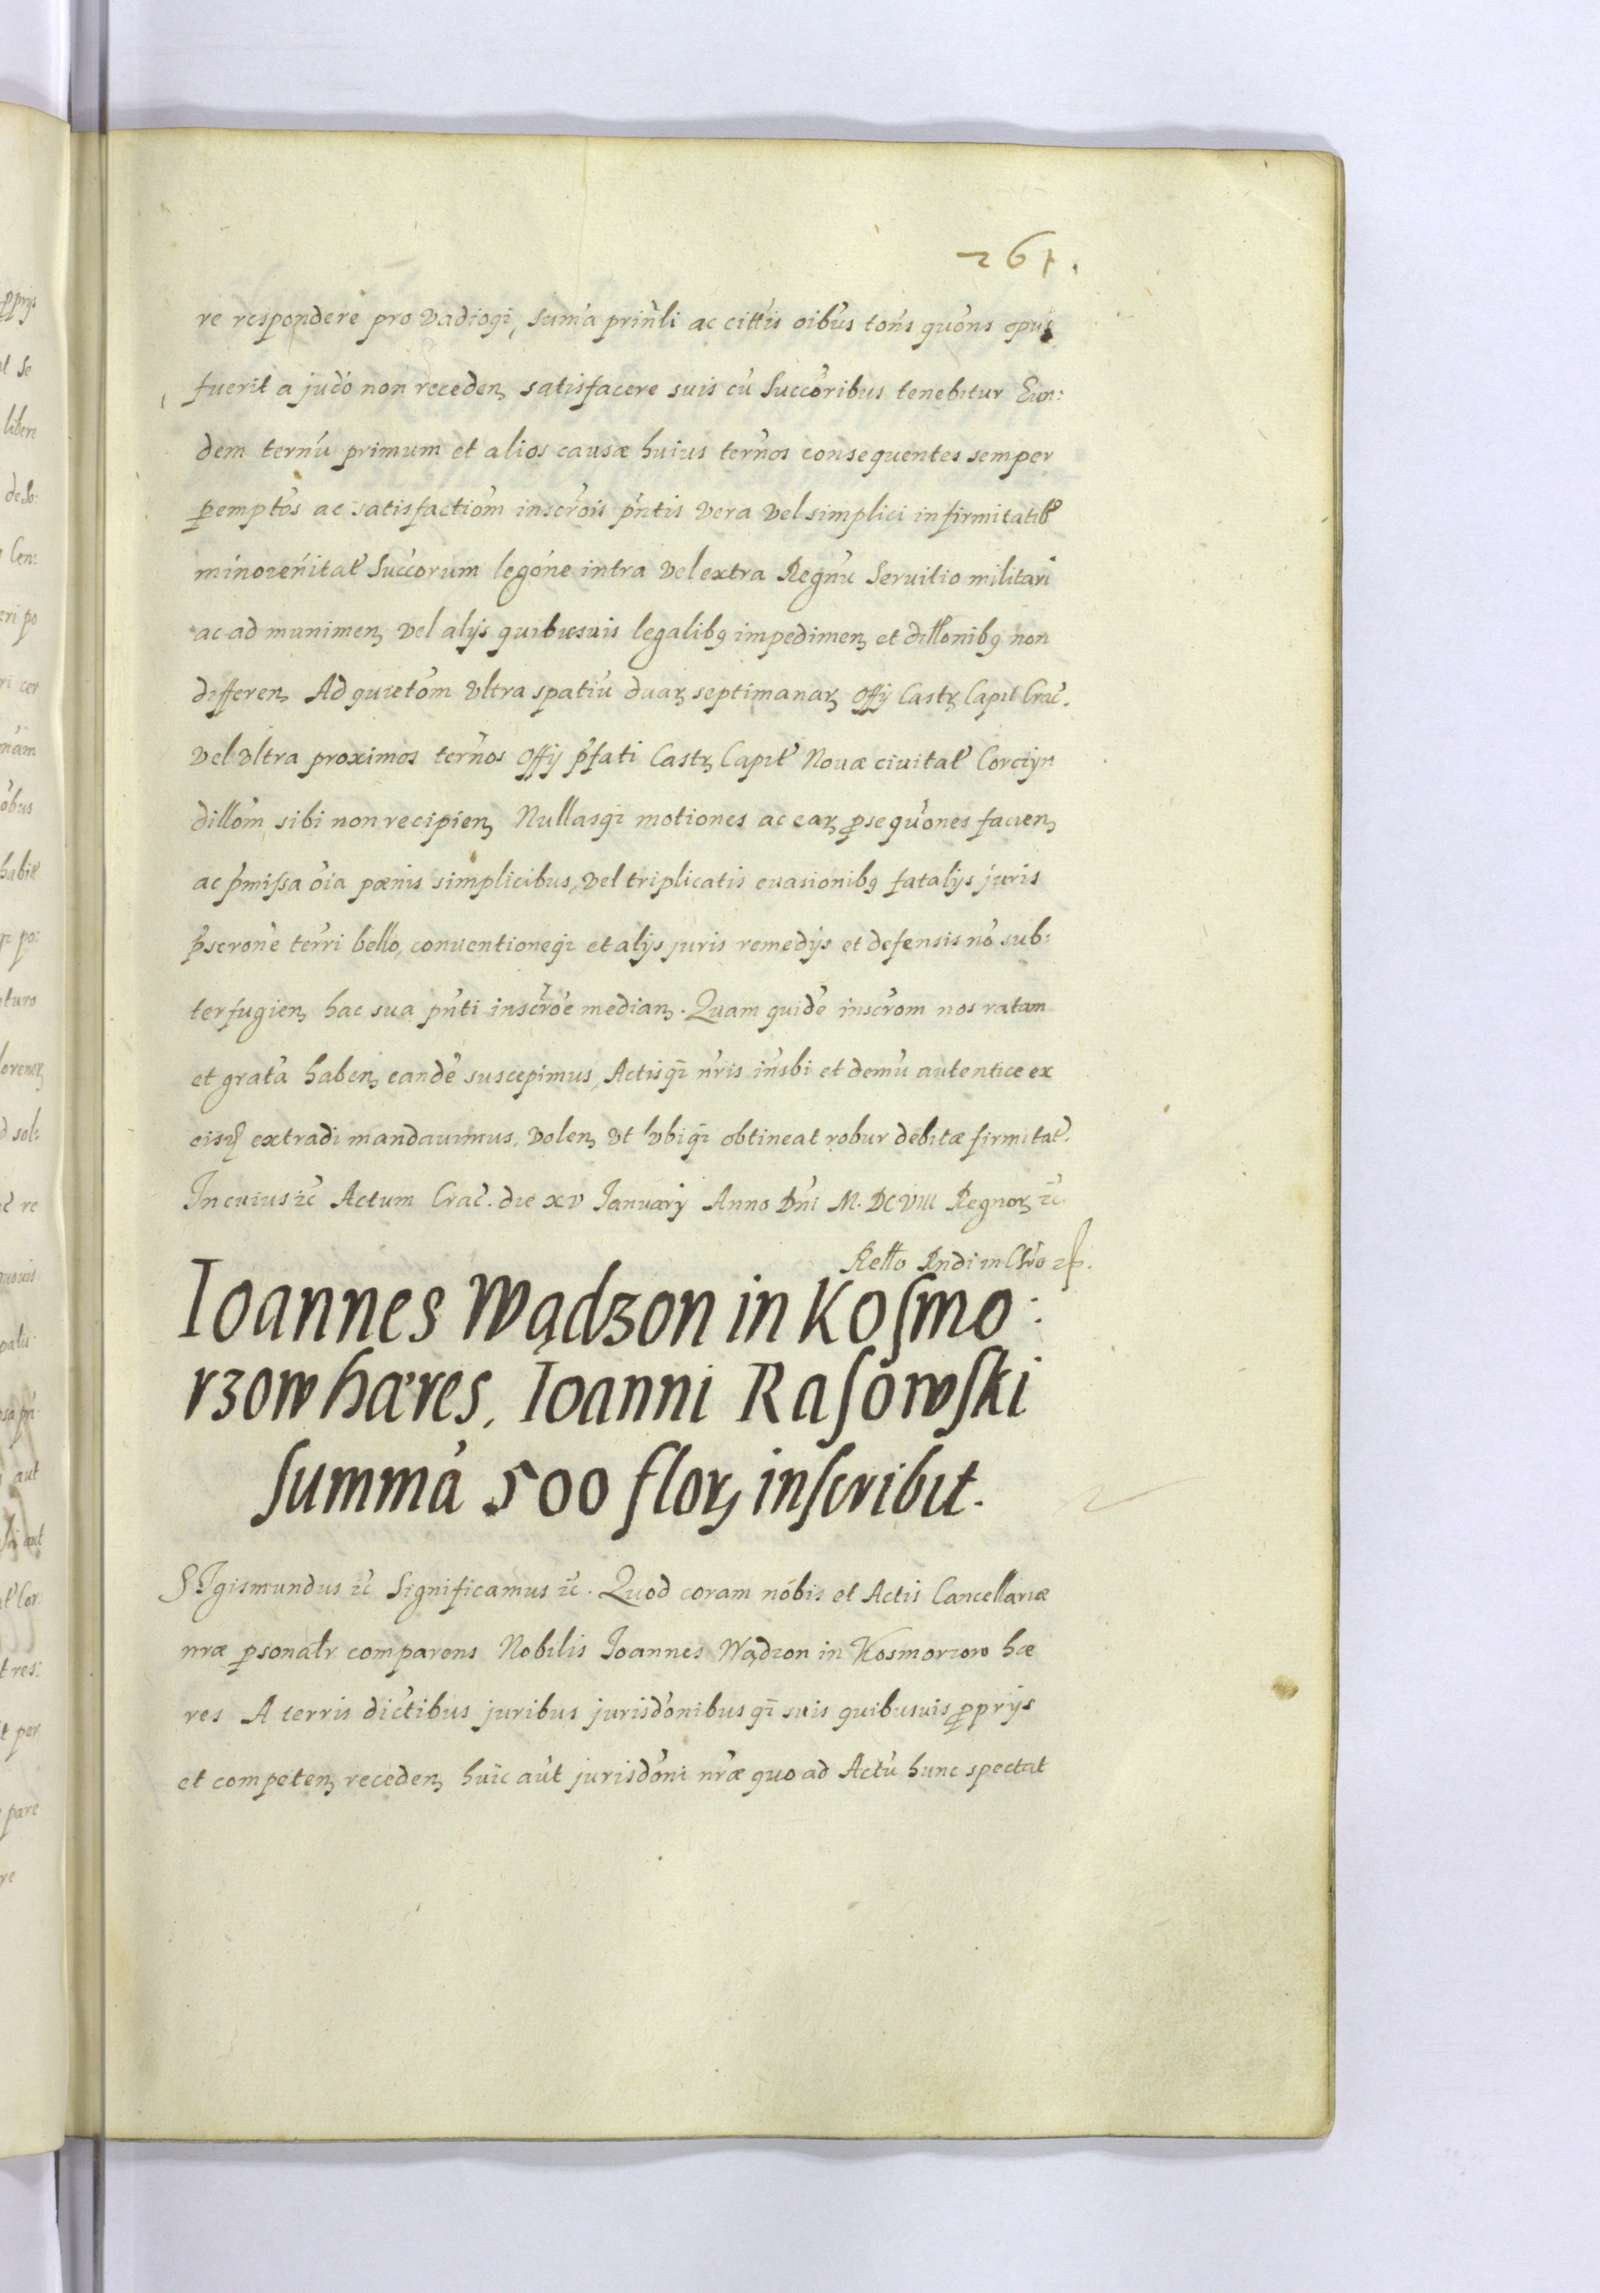 261.
re respondere pro vadioqȝ, suma prinli ac cittis oibus tons quons opus
fuerit a judo non receden satisfacere suis cu Succoribus tenebitur Eun:
dem ternu primum et alios causæ huius ternos consequentes semper
pemptos ac satisfactiom inscrois pntis vera vel simplici infirmitate
minorenitat Succorum legone intra vel extra Regnu Servitio militari
ac ad munimen vel alijs quibusuis legalibȝ impedimen et dillonibȝ non
differen Ad quietom vltra spatiu duaȝ septimanaȝ Offy Castȝ Capit Crac.
vel vltra proximos ternos Offy pfati Castȝ Capit Novæ civitat Corciyn
dillom sibi non recipien Nullasqȝ motiones ac eaȝ psequones facien
ac pmissa oia pœnis simplicibus, vel triplicatis evasionibȝ fatalijs juris
pscrone terri bello, conventioneqȝ et alijs juris remedijs et defensis no sub:
terfugien hac sua pnti inscroe median. Quam quide inscrom nos ratam
et grata haben eande suscepimus, Actisqȝ nris insbi et demu autentice ex
eisd extradi mandauimus, volen vt vbiqȝ obtineat robur debitæ firmitat.
In cuius ꝛc Actum Crac. die xv January Anno Dni M. DCVIII Regnoȝ ꝛc
Retto Rndi in Chro
Ioannes Wądzon in Kosmo:
rzow hæres, Ioanni Rasowski
summa 500 floȝ inscribit.
SIgismundus ꝛc Significamus ꝛc. Quod coram nobis et Actis Cancellariæ
nræ psonalr comparens Nobilis Joannes Wądzon in Kosmorzow hæ
res A terris dictibus juribus jurisdonibusqȝ suis quibusuis pprijs
et competen receden huic aut jurisdoni nræ quo ad Actu hunc spectat